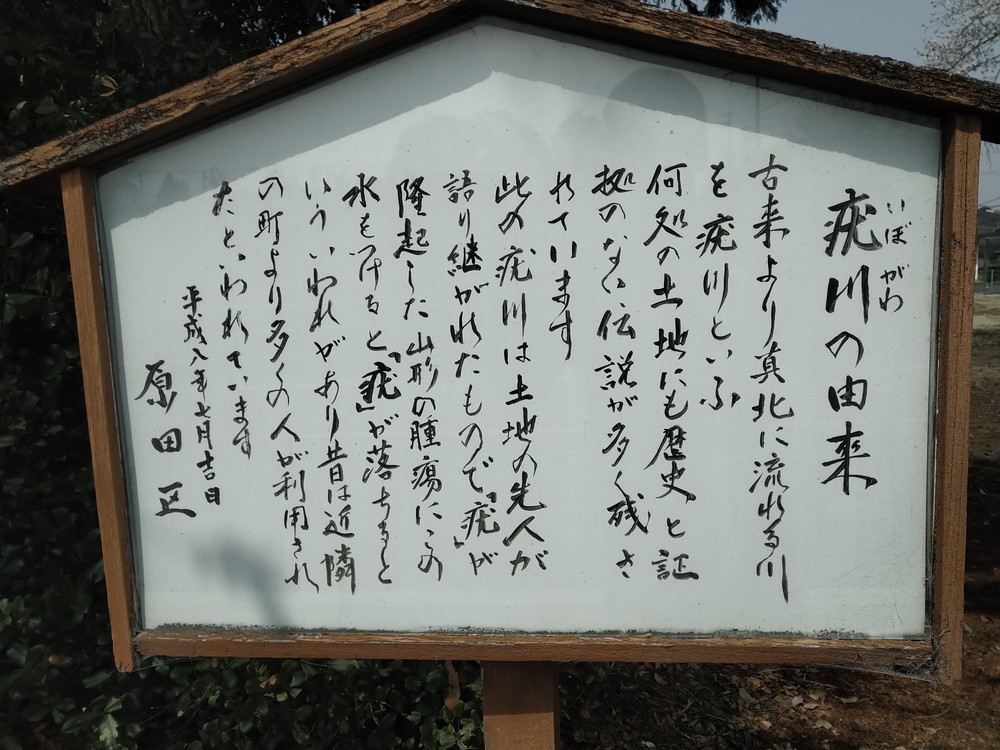 疣川の由来
いぼ がわ
古来より真北に流れる川
を疣川といふ
何処の土地にも歴史と証
拠のない伝説が多く残さ
れています
此の疣川は土地の先人が
語り継がれたもので「疣」が
隆起した山形の腫瘍にこの
水をつけると「疣」が落ちると
いういわれがあり昔は近隣
の町より多くの人が利用され
たといわれています
平成八年七月吉日
原田区